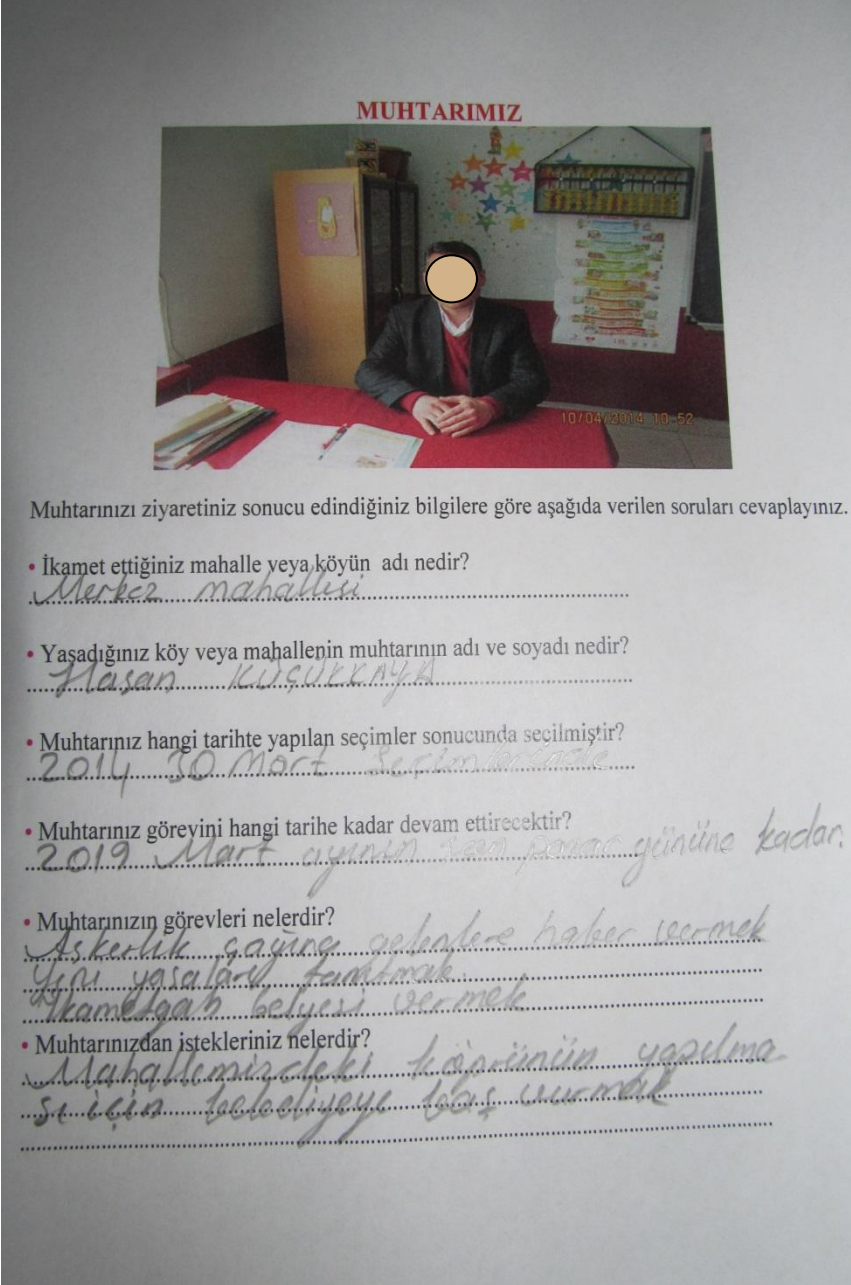 MUHTARIMIZ
10/04/2014 10:52
Muhtarınızı ziyaretiniz sonucu edindiğiniz bilgilere göre aşağıda verilen soruları cevaplayınız.
• İkamet ettiğiniz mahalle veya köyün adı nedir?
Merkez mahallesi
• Yaşadığınız köy veya mahallenin muhtarının adı ve soyadı nedir?
Hasan KÜÇÜKKAYA
• Muhtarınız hangi tarihte yapılan seçimler sonucunda seçilmiştir?
2014 30 Mart seçimlerinde
• Muhtarınız görevini hangi tarihe kadar devam ettirecektir?
2019 Mart ayının son pazar gününe kadar.
• Muhtarınızın görevleri nelerdir?
Askerlik çağına gelenlere haber vermek
Yeni yasaları tanıtmak.
İkametgah belgesi vermek
• Muhtarınızdan istekleriniz nelerdir?
Mahallemizdeki köprünün yapılma
sı için belediyeye baş vurmak